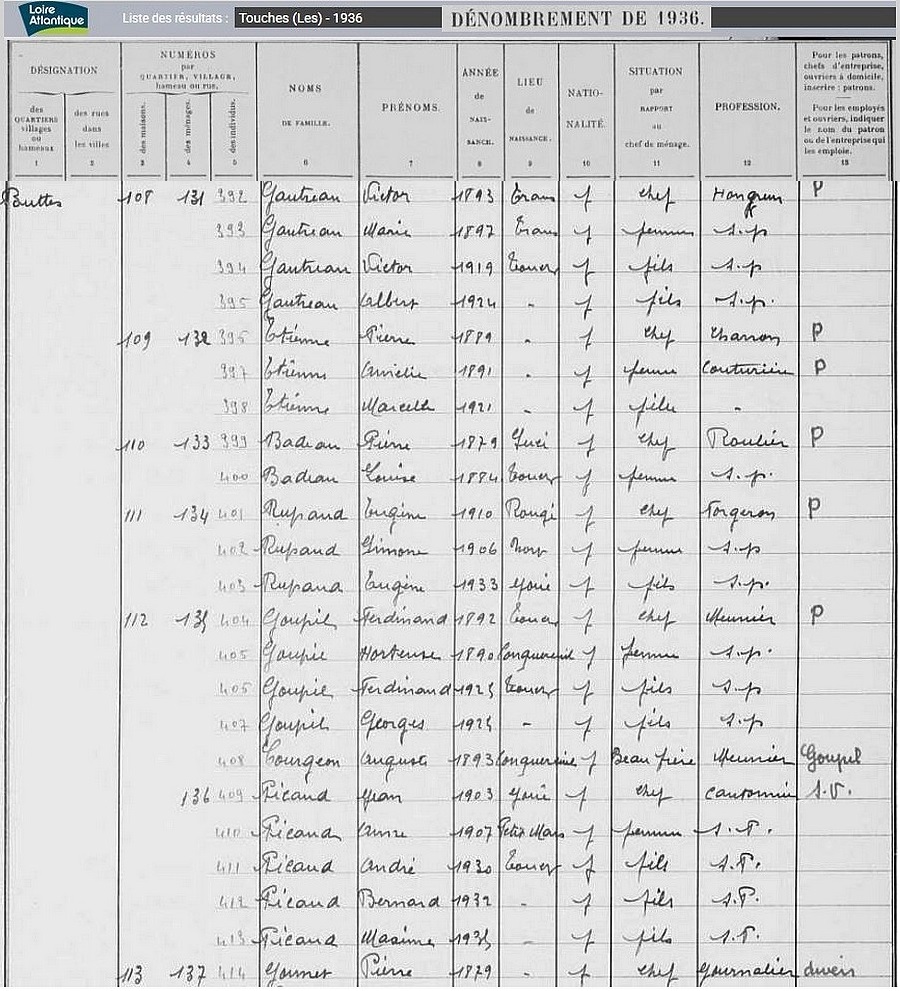 Loire Atlantique
Liste des résultats : Touches (Les) - 1936
DÉNOMBREMENT DE 1936.
DÉSIGNATION
des QUARTIERS villages ou hameaux
1
des rues dans les villes
2
NUMÉROS par QUARTIER, VILLAGE, hameau ou rue.
des maisons.
3
des ménages.
4
des individus.
5
NOMS DE FAMILLE.
6
PRÉNOMS.
7
ANNÉE de NAIS-SANCE.
8
LIEU de NAISSANCE.
9
NATIO-NALITÉ.
10
SITUATION par RAPPORT au chef de ménage.
11
PROFESSION.
12
Pour les patrons, chefs d'entreprise, ouvriers à domicile, inscrire : patrons.
Pour les employés et ouvriers, indiquer le nom du patron ou de l'entreprise qui les emploie.
13
Buttes 108 131 392 Gautreau Victor 1893 f chef P
393 Gautreau Marie 1897 f femme s.p
394 Gautreau Victor 1919 Touches f fils s.p
395 Gautreau Albert 1924 - f fils s.p.
109 132 396 Etienne Pierre 1889 - f chef Charron P
397 Etienne Amélie 1891 - f femme Couturière P
398 Etienne Marcelle 1921 - f fille -
110 133 399 Badeau Pierre 1879 f chef Roulier P
400 Badeau Louise 1884 Touches f femme s.p.
111 134 401 Rupaud Eugène 1910 Rougé f chef Forgeron P
402 Rupaud Simone 1906 Nort f femme s.p
403 Rupaud Eugène 1933 Joué f fils s.p.
112 135 404 Goupil Ferdinand 1892 Touches f chef Meunier P
405 Goupil Hortense 1890 Conquereuil f femme s.p.
405 Goupil Ferdinand 1925 Touches f fils s.p
407 Goupil Georges 1925 - f fils s.p
408 Courgeon Auguste 1893 Conquereuil f Beau frère Meunier Goupil
136 409 Picaud Jean 1903 Joué f chef Cantonnier S.V.
410 Picaud Anne 1907 Petit Mars f femme S.P.
411 Picaud André 1930 Touches f fils S.P.
412 Picaud Bernard 1932 - f fils S.P.
413 Picaud Maxime 1935 - f fils S.P.
113 137 414 Pierre 1879 - f chef Journalier divers